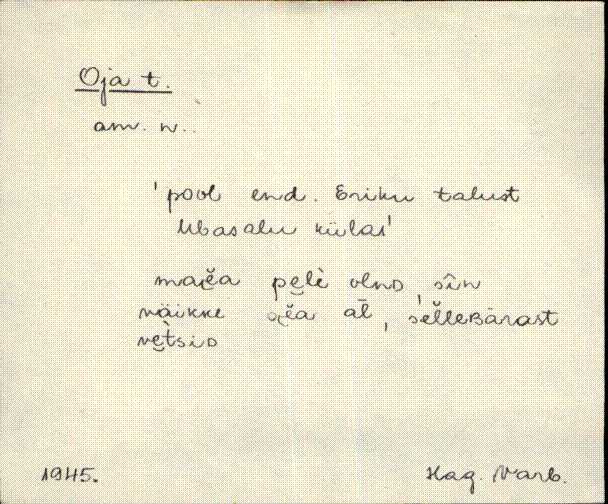 Oja t.
am. n..
'pool end. Eriku talust
Ubasalu külas'
pelè olnd, sîn
väikke āl, sèlleBärast
vetsid
1945.
Hag. Varb.